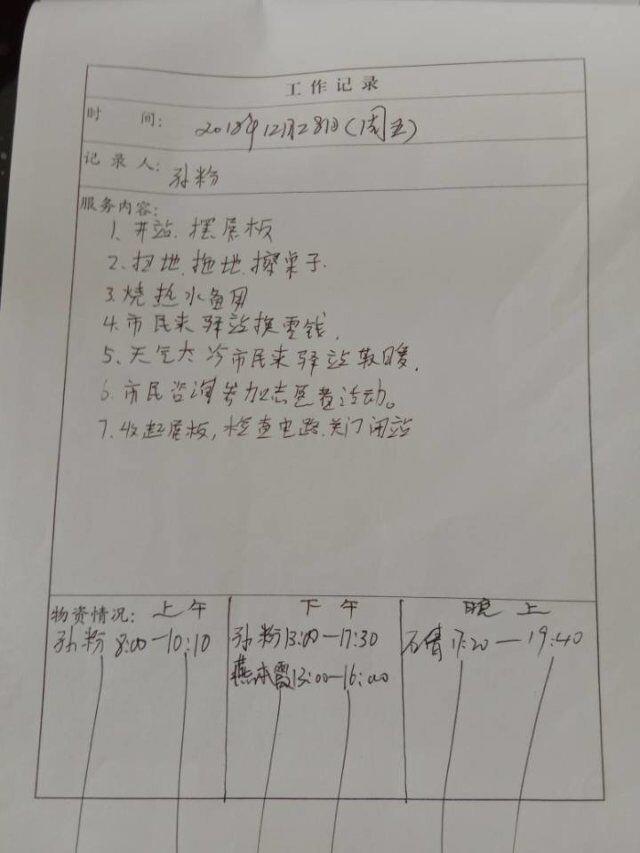 工作记录
时 间: 2018年12月28日(周五)
记录人: 孙粉
服务内容:
1、开站、摆展板
2、扫地、拖地、擦桌子.
3、烧热水备用
4、市民来驿站换零钱.
5、天气太冷市民来驿站取暖.
6、市民咨询参加志愿者活动。
7、收起展板,检查电路.关门闭站
物资情况: 上午 下午 晚上
孙粉 8:00—10:10 孙粉13:00—17:30 石倩 17:20—19:40
燕霞13:00—16:00